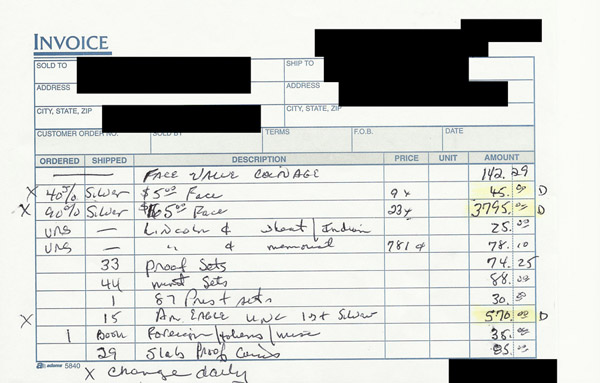 INVOICE
SOLD TO SHIP TO
ADDRESS ADDRESS
CITY, STATE, ZIP CITY, STATE, ZIP
CUSTOMER ORDER NO. SOLD BY TERMS F.O.B. DATE
ORDERED SHIPPED DESCRIPTION PRICE UNIT AMOUNT
— FACE VALUE COINAGE 142.29
X 40% Silver $5.00 Face 9x 45.00 D
X 90% Silver $165.00 Face 23x 3795.00 D
UNS — Lincoln ¢ wheat/Indian 25.00
UNS — " ¢ memorial 781¢ 78.10
33 Proof Sets 74.25
44 mint Sets 88.00
1 87 Prest sets 30.00
X 15 Am EAGLE UNC 1oz Silver 570.00 D
1 Book Foreign/tokens/misc 35.00
29 Slabs Proof Coins 85.00
adams 5840
X change daily